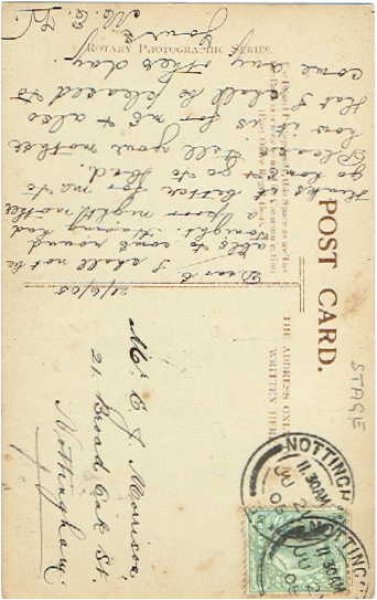 ROTARY PHOTOGRAPHIC SERIES.
POST CARD.
THE ADDRESS ONLY
WRITTEN HERE
STAGE
21/6/05
Dear E
I shall not be
able to come round
tonight. Having had
a poor night, mother
thinks it better for me to
go to bed.
Please tell your mother
how it is for me & also
that I shall be pleased to
come any other day.
Yours
Mr. E. J. Morrison,
21. Broad Oak St.
Nottingham
NOTTINGH
11.30AM
JU 2
05
NOTTINGH
11.30AM
JU
05